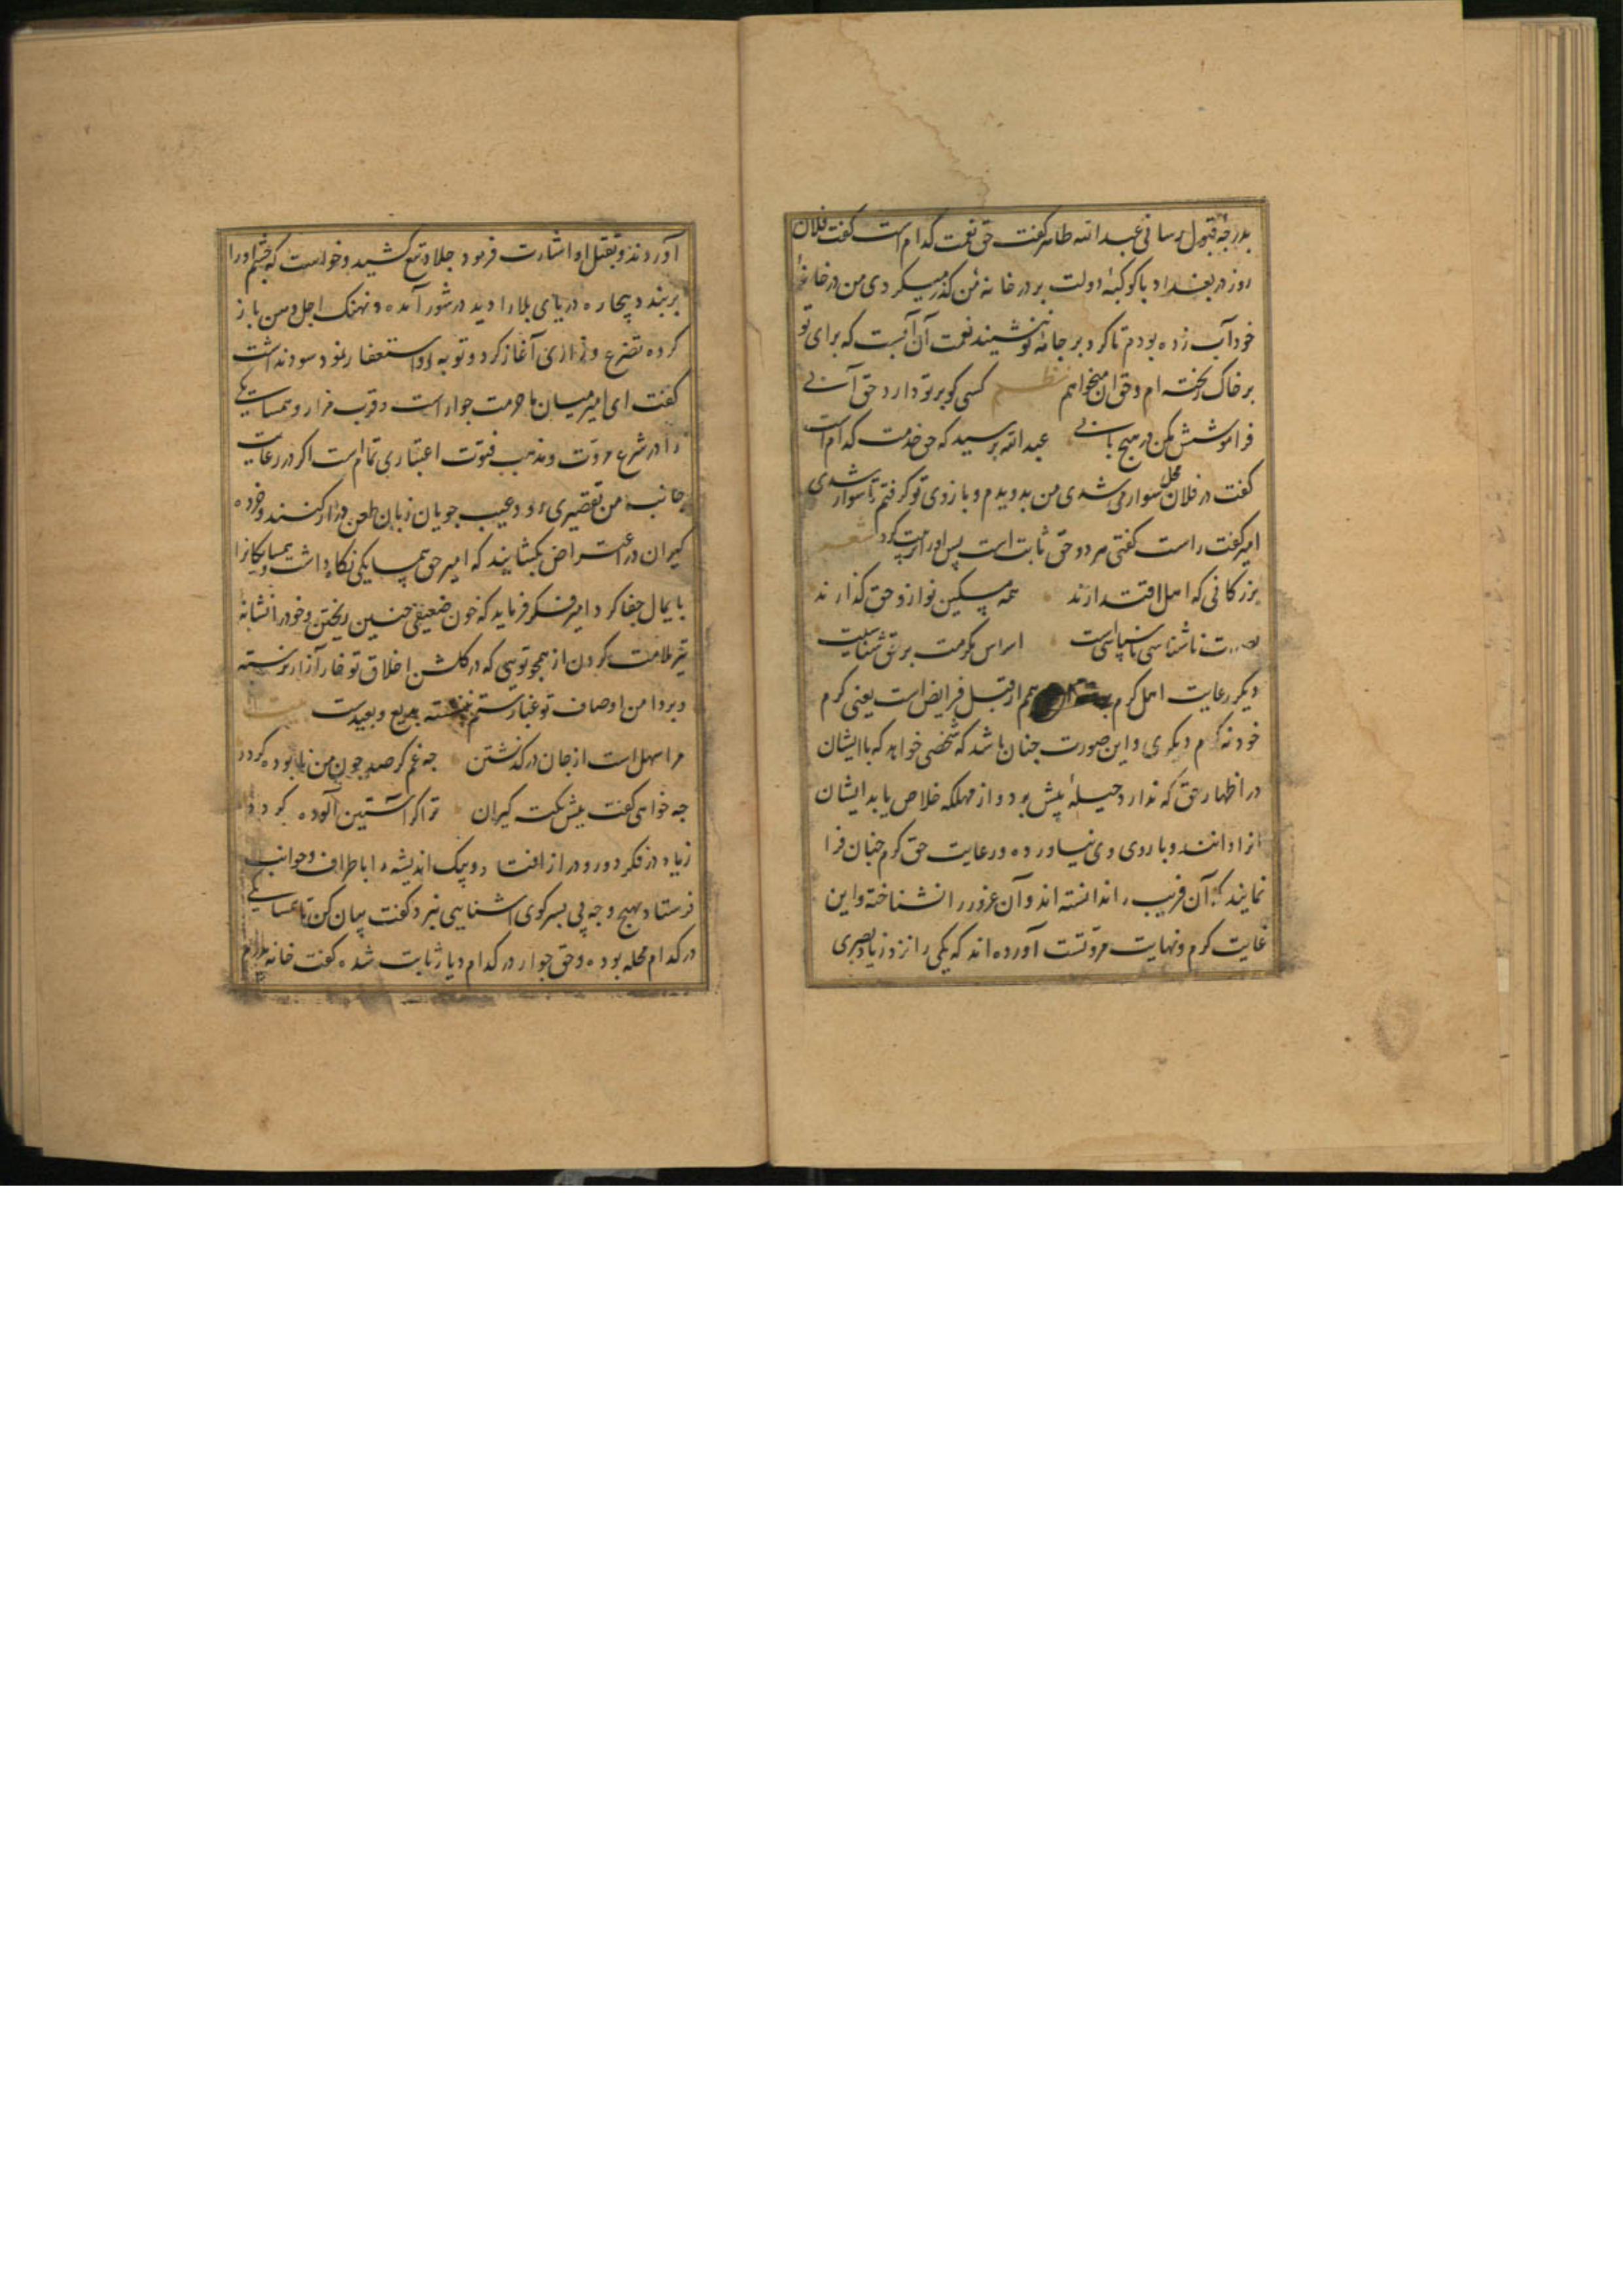 بدرجهٔ قبول رسانی عبدالله طاهر گفت حق نعمت کدام است گفت فلان
روز در بغداد با کوکبهٔ دولت بر در خانهٔ من گذر میکردی من در خانهٔ
خود آب زده بودم تا کرد بر جامهٔ تو ننشیند نعمت آن آبست که برای تو
بر خاک ریخته ام و حق آن میخواهم نظم کسی کو بر تو دارد حق آبی
فراموشش مکن در هیچ بابی عبدالله پرسید که حق خدمت کدام است
گفت در فلان محل سوار می شدی من بدویدم و بازوی تو گرفتم تا سوار شدی
امیر گفت راست گفتی هر دو حق ثابت است پس او را تربیت کرد شعر
بزرکانی که اهل اقتدارند همه مسکین نواز و حق گذارند
ناشناسی ناسپاسی است اساس مکرمت بر حق شناسیست
دیگر رعایت اهل کرم هم از قبیل فرایض است یعنی کرم
خود نه کرم دیگری و این صورت چنان باشد که شخصی خواهد که با ایشان
در اظهار حق که ندارد حیلهٔ پیش برد و از مهلکه خلاص یابد ایشان
آنرا دانند و با روی وی نیاورده و رعایت حق کرم چنان فرا
نمایند که آن فریب را ندانسته اند و آن غرور را نشناخته و این
غایت کرم و نهایت مروتست آورده اند که یکی را نزد زیاد بصری
آوردند و بقتل او اشارت فرمود جلاد تیغ کشید و خواست که چشم او را
بربندد بیچاره دریای بلا را دید در شور آمده و نهنک اجل دهن باز
کرده تضرع و زاری آغاز کرد و توبه و استغفار نمود سود نداشت
گفت ای امیر میان ما حرمت جوار است و قرب مزار و همسایکی
را در شرع مروت و مذهب فتوت اعتباری تمام است اکر در رعایت
جانب من تقصیری رود عیب جویان زبان طعن دراز کنند و خرده
کیران در اعتراض بکشایند که امیر حق همسایکی نکاه نداشت و همسایکانرا
پایمال جفا کرد امیر فکر فرماید که خون ضعیفی چنین ریختن و خود را نشانهٔ
تیر ملامت کردن از همچو تویی که در کلشن اخلاق تو خار آزار نرسته
و بر دامن اوصاف تو غبار ستم ننشسته بدیع و بعیدست بیت
مرا سهل است از جان در گذشتن چه غم گر صد چون من نابوده کردد
چه خواهی گفت پیش نکته کیران ترا گر آستین آلوده کردد
زیاد در فکر دور و دراز افتاد و پیک اندیشه را باطراف و جوانب
فرستاد بهیچ وجه پی بسر کوی آشنایی نبرد گفت بیان کن تا همسایکی
در کدام محله بوده و حق جوار در کدام دیار ثابت شده گفت خانهٔ پدرم